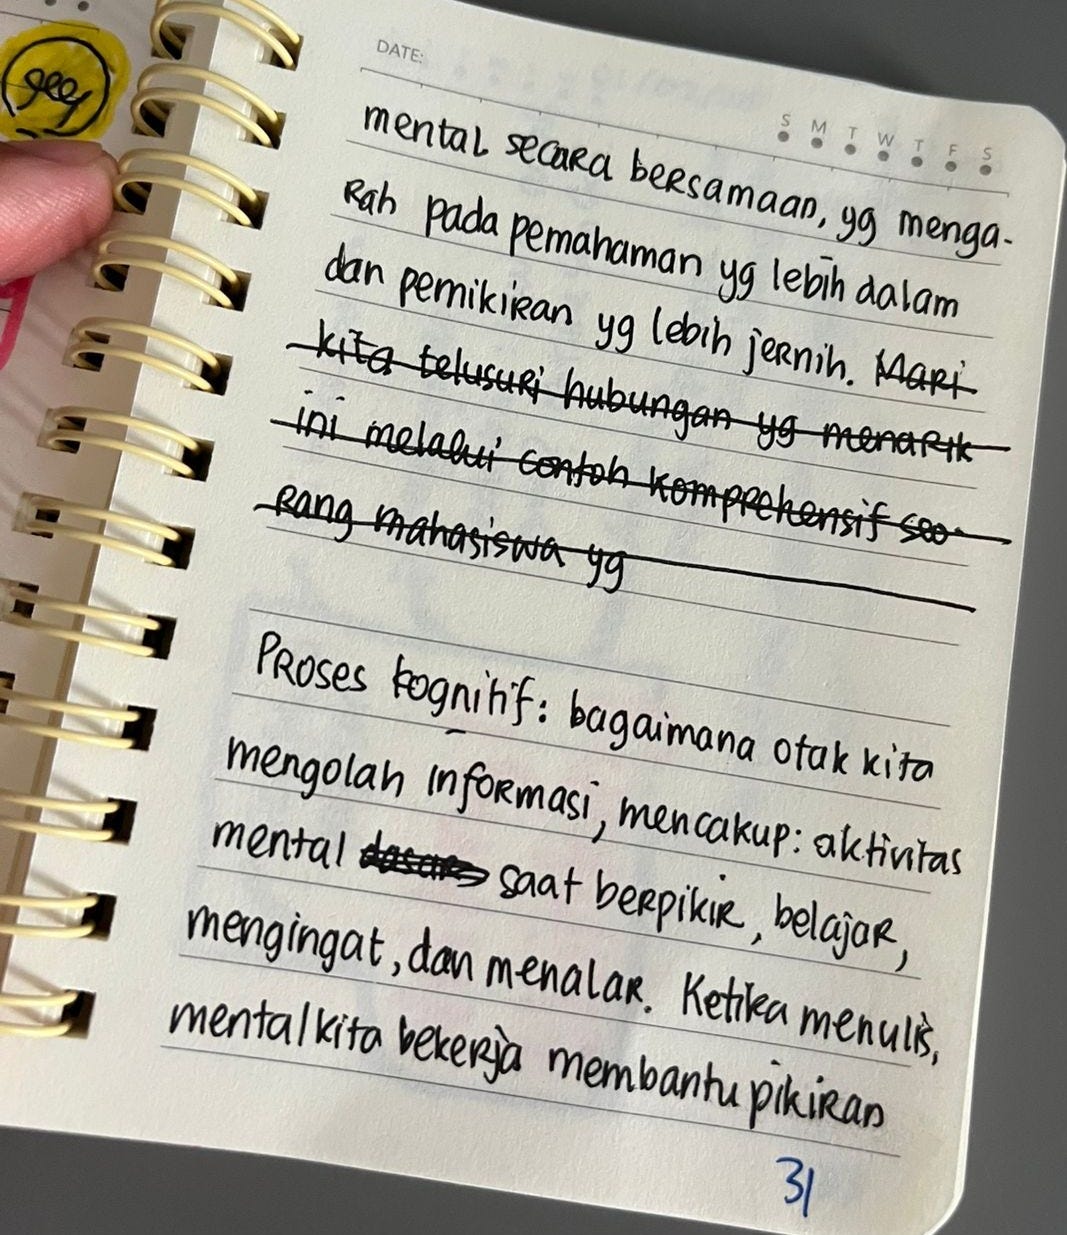 DATE:
S M T W T F S
mental secara bersamaan, yg menga-
rah pada pemahaman yg lebih dalam
dan pemikiran yg lebih jernih. Mari
kita telusuri hubungan yg menarik
ini melalui contoh komprehensif seo-
rang mahasiswa yg
Proses kognitif: bagaimana otak kita
mengolah informasi, mencakup: aktivitas
mental dasar saat berpikir, belajar,
mengingat, dan menalar. Ketika menulis,
mental kita bekerja membantu pikiran
31